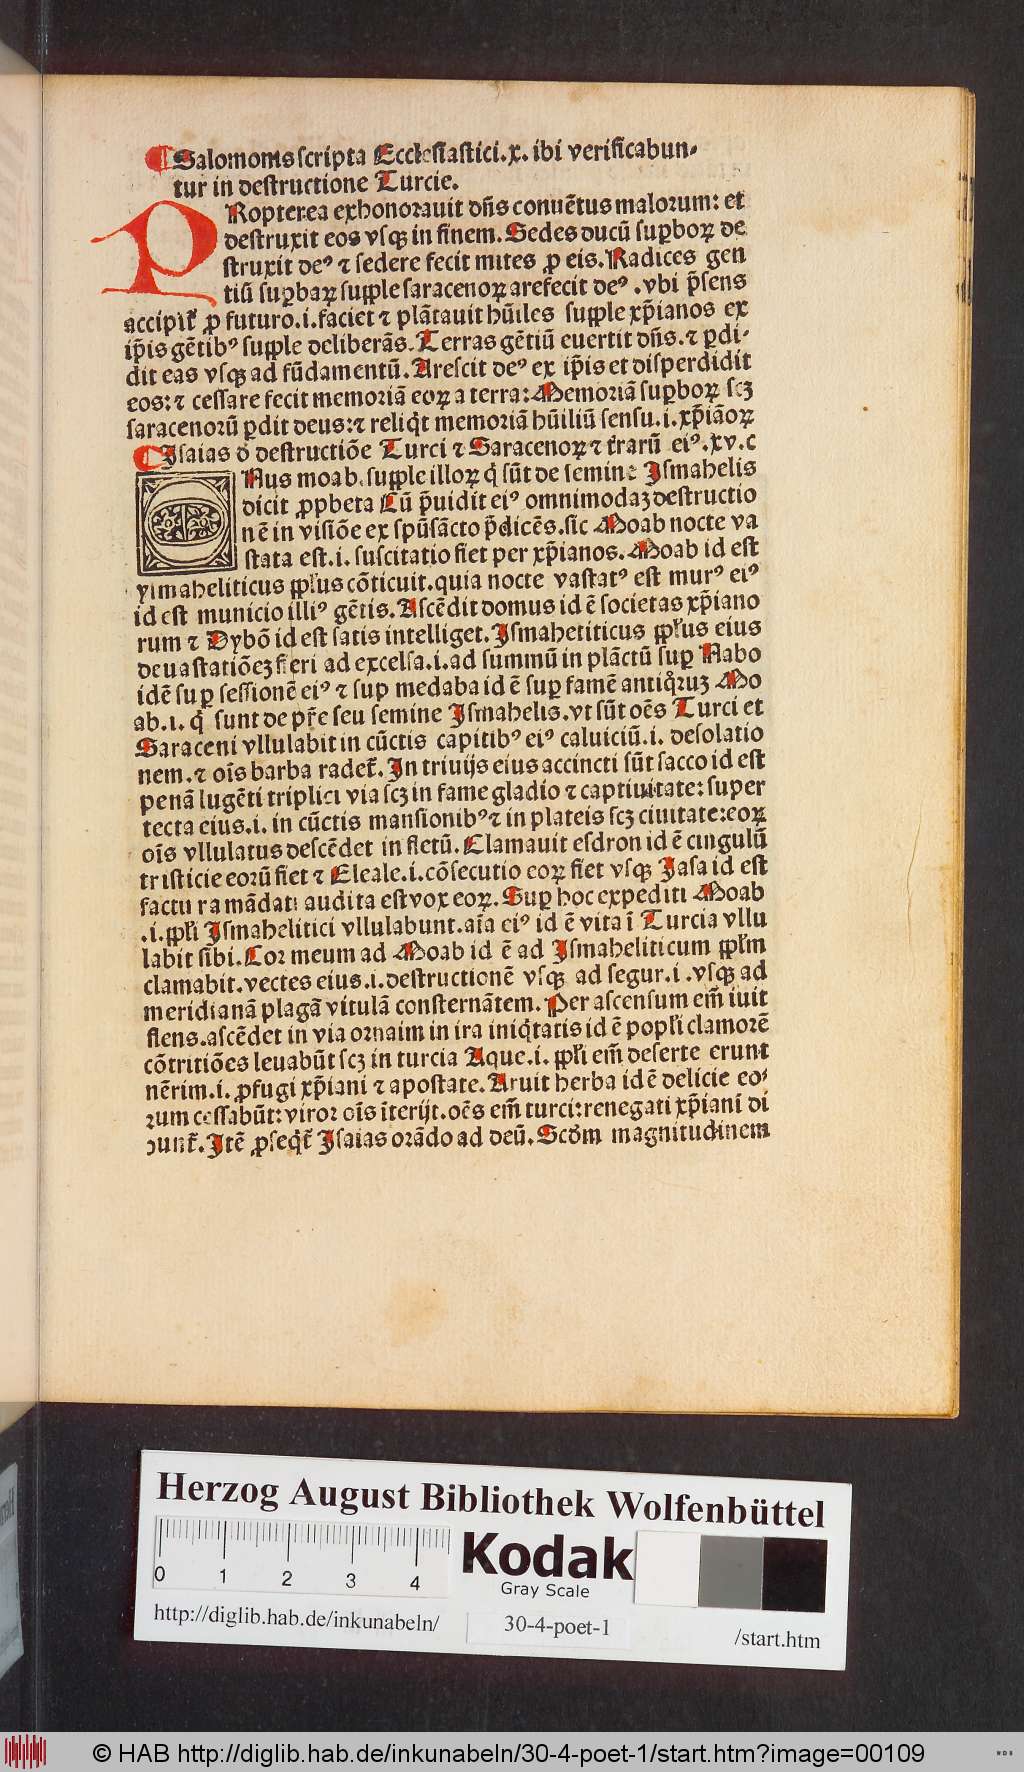 Salomonis scripta Ecclesiastici.x. ibi verificabun⸗
tur in destructione Turcie.
PRopterea exhonorauit dn̄s conuētus malorum: et
destruxit eos vsqꝫ in finem. Sedes ducū suꝑboꝝ de
struxit deꝰ ⁊ sedere fecit mites ꝓ eis. Radices gen
tiū suꝑbaꝝ supple saracenoꝝ arefecit deꝰ .vbi p̄sens
accipit̄ ꝓ futuro.i.faciet ⁊ plātauit hūiles supple xp̄ianos ex
ip̄is gētibꝰ supple deliberās. Terras gētiū euertit dn̄s.⁊ ꝑdi⸗
dit eas vsqꝫ ad fūdamentū. Arescit deꝰ ex ip̄is et disperdidit
eos: ⁊ cessare fecit memoriā eoꝝ a terra: Memoriā suꝑboꝝ scꝫ
saracenorū ꝑdit deus: ⁊ reliqt̄ memoriā hūiliū sensu.i.xp̄iāoꝝ
Isaias ō destructiōe Turci ⁊ Saracenoꝝ ⁊ t̄rarū eiꝰ.xv.c
ONus moab.supple illoꝝ q̄ sūt de semine Ismahelis
dicit ꝓpheta Cū p̄uidit eiꝰ omnimodaꝫ destructio
nē in visiōe ex spūsācto p̄dicēs.sic Moab nocte va
stata est.i. suscitatio fiet per xp̄ianos. Moab id est
ymaheliticus pp̄lus cōticuit.quia nocte vastatꝰ est murꝰ eiꝰ
id est municio illiꝰ gētis. Ascēdit domus id ē societas xp̄iano
rum ⁊ Dybō id est satis intelliget. Ismahetiticus pp̄lus eius
deuastatiōeꝫ fieri ad excelsa.i.ad summū in plāctū suꝑ Nabo
idē suꝑ sessionē eiꝰ ⁊ suꝑ medaba id ē suꝑ famē antiq̄ruꝫ Mo
ab.i. q̄ sunt de pr̄e seu semine Ismahelis.vt sūt oēs Turci et
Saraceni vllulabit in cūctis capitibꝰ eiꝰ caluiciū.i. desolatio
nem.⁊ oīs barba radet̄. In triuijs eius accincti sūt sacco id est
penā lugēti triplici via scꝫ in fame gladio ⁊ captiuitate: super
tecta eius.i. in cūctis mansionibꝰ ⁊ in plateis scꝫ ciuitate: eoꝝ
oīs vllulatus descēdet in fletū. Clamauit esdron id ē cingulū
tristicie eorū fiet ⁊ Eleale.i.cōsecutio eoꝝ fiet vsqꝫ Jasa id est
factura mādati audita est vox eoꝝ. Suꝑ hoc expediti Moab
.i.pp̄li Ismahelitici vllulabunt.aīa eiꝰ id ē vita ī Turcia vllu
labit sibi. Cor meum ad Moab id ē ad Ismaheliticum pp̄lm
clamabit.vectes eius.i.destructionē vsqꝫ ad segur.i.vsqꝫ ad
meridianā plagā vitulā consternātem. Per ascensum em̄ iuit
flens.ascēdet in via ornaim in ira iniq̄tatis id ē popl̄i clamorē
cōtritiōes leuabūt scꝫ in turcia Aque.i. pp̄li em̄ deserte erunt
nērim.i. ꝓfugi xp̄iani ⁊ apostate. Aruit herba id ē delicie eo⸗
rum cessabūt: viror oīs īterijt.oēs em̄ turci: renegati xp̄iani di
cunt̄. Itē ꝓseqt̄ Isaias orādo ad deū. Scd̄m magnitudinem
Herzog August Bibliothek Wolfenbüttel
0 1 2 3 4
Kodak
Gray Scale
http://diglib.hab.de/inkunabeln/
30-4-poet-1
/start.htm
© HAB http://diglib.hab.de/inkunabeln/30-4-poet-1/start.htm?image=00109